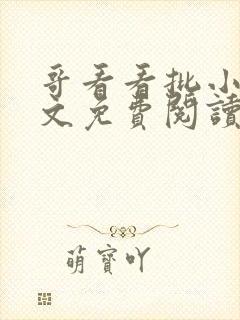 哥看看批小
文免費閱讀
萌寶吖